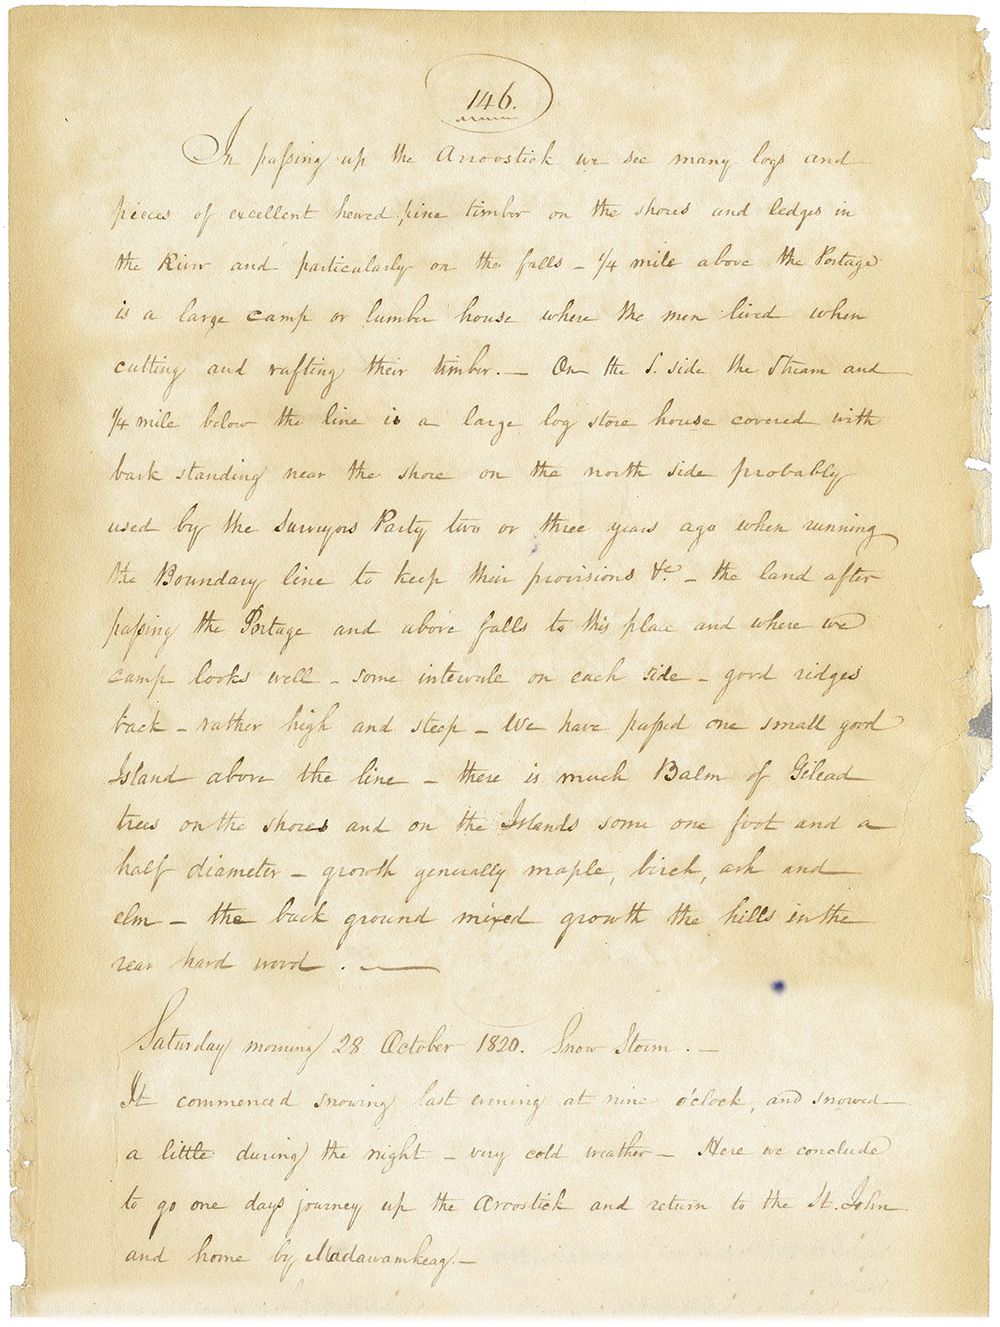 146.
In passing up the Aroostick we see many logs and
pieces of excellent hewed pine timber on the shores and ledges in
the River and particularly on the falls – 1/4 mile above the Portage
is a large camp or lumber house where the men lived when
cutting and rafting their timber. – On the S. side the Stream and
1/4 mile below the line is a large log store house covered with
bark standing near the shore on the north side probably
used by the Surveyors Party two or three years ago when running
the Boundary line to keep their provisions &c. – the land after
passing the Portage and above falls to this place and where we
camp looks well – some intervale on each side – good ridges
back – rather high and steep – We have passed one small good
Island above the line – there is much Balm of Gilead
trees on the shores and on the Islands some one foot and a
half diameter – growth generally maple, birch, ash and
elm – the back ground mixed growth the hills in the
rear hard wood. —
Saturday morning 28 October 1820. Snow Storm. –
It commenced snowing last evening at nine o'clock, and snowed
a little during the night – very cold weather – Here we conclude
to go one days journey up the Aroostick and return to the St. John
and home by Madawamkeag. –